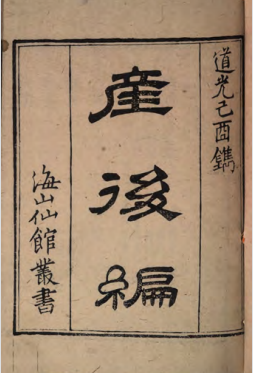 道光己酉鐫
産後編
海山仙館叢書